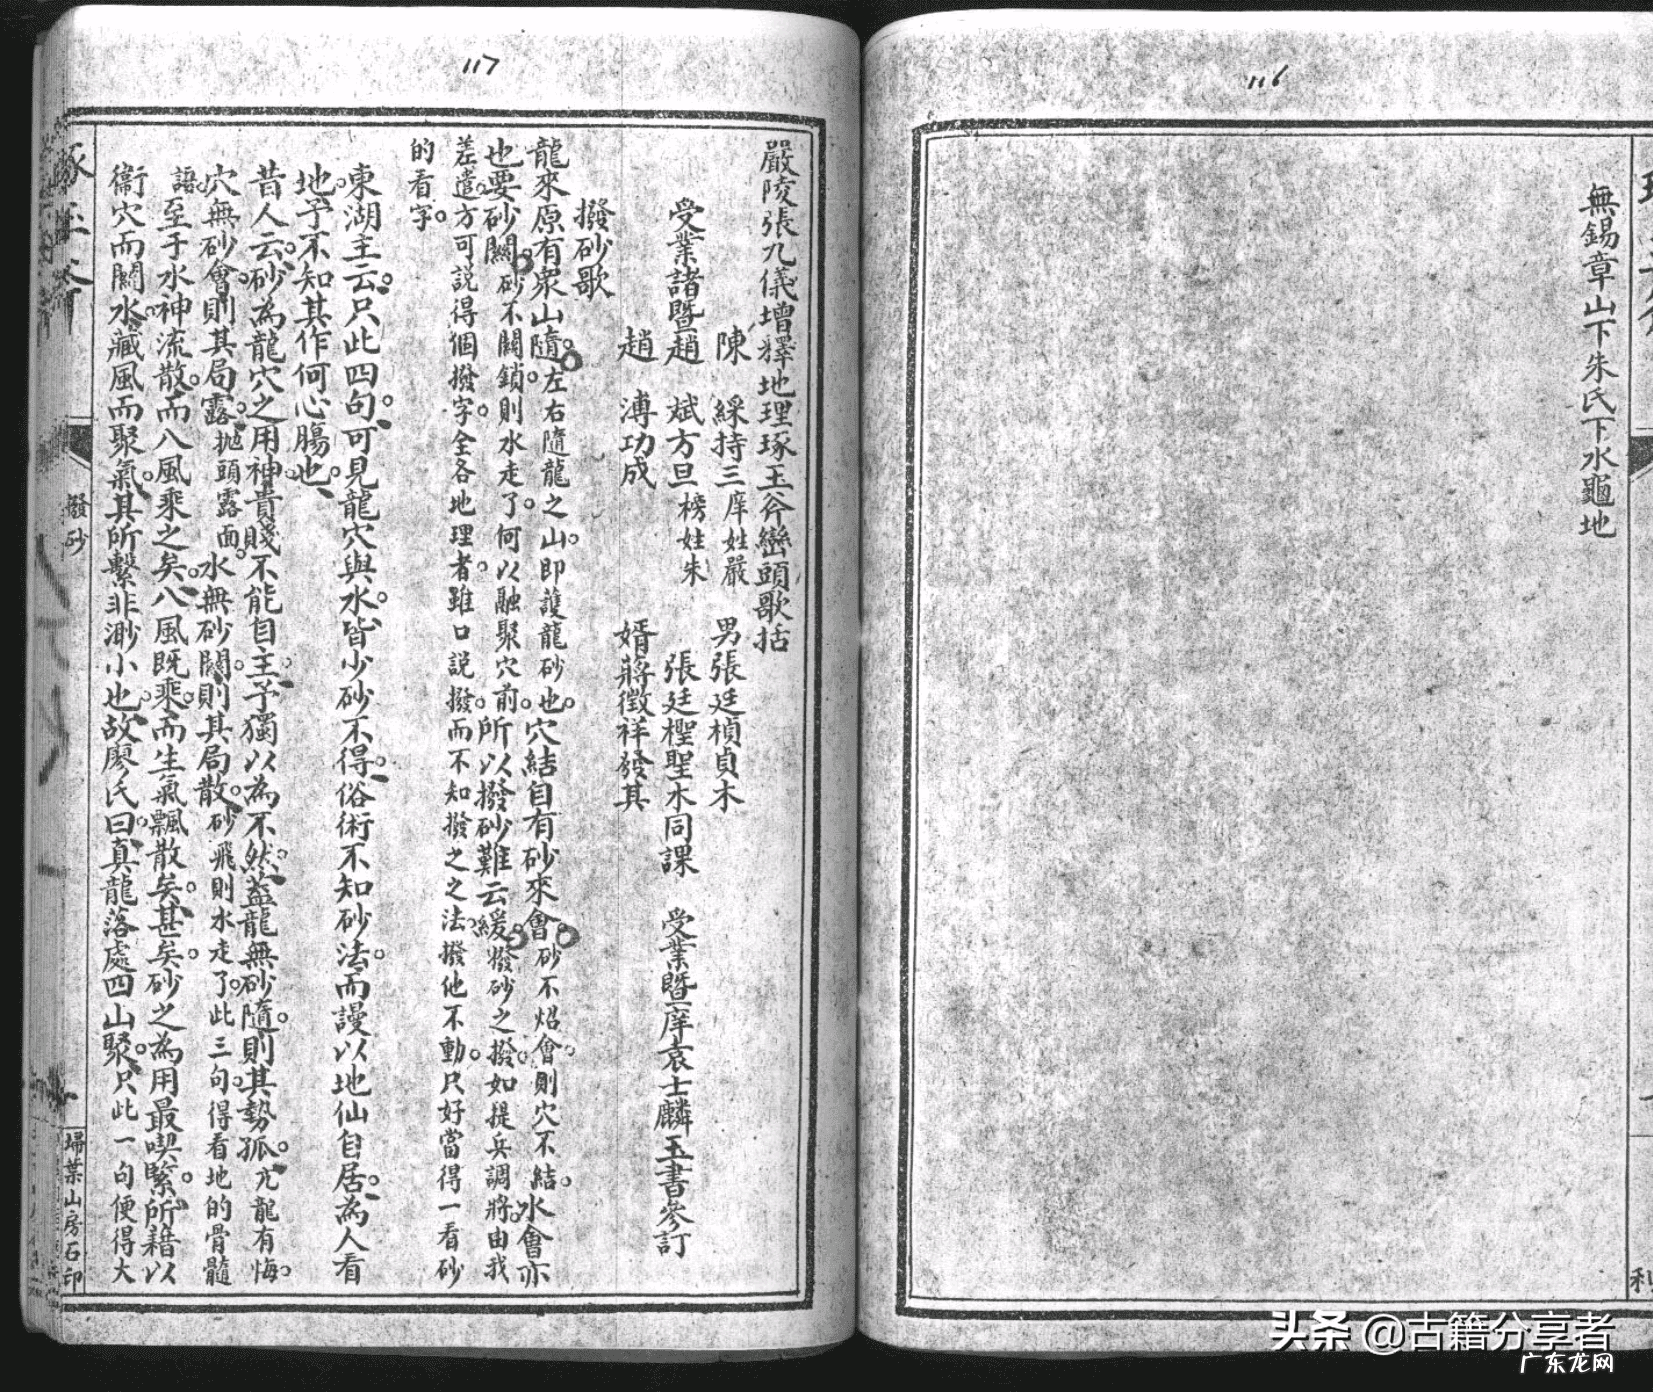 116
無錫章山下朱氏下水龜地
利
117
嚴陵張九儀增釋地理琢玉斧巒頭歌括
陳 綵持三庠姓嚴 男張廷楨貞木
受業諸暨趙 斌方旦榜姓朱 張廷樫聖水同課 受業暨庠袁士麟玉書參訂
趙 溥功成 婿蔣徵祥發其
撥砂歌
龍來原有眾山隨左右隨龍之山即護龍砂也穴結自有砂來會砂不炤會則穴不結水會亦
也要砂關砂不關鎖則水走了何以融聚穴前所以撥砂難云緩撥砂之撥如提兵調將由我
差遣方可説得個撥字全各地理者雖口説撥而不知撥之之法撥他不動只好當得一看砂
的看字
東湖主云只此四句可見龍穴與水皆少砂不得俗術不知砂法而謾以地仙自居為人看
地予不知其作何心腸也
昔人云砂為龍穴之用神貴賤不能自主予獨以為不然葢龍無砂隨則其勢孤亢龍有悔
穴無砂會則其局露拋頭露面水無砂關則其局散砂飛則水走了此三句得看地的骨髓
語至于水神流散而八風乘之矣八風既乘而生氣飄散矣甚矣砂之為用最喫緊所藉以
衞穴而關水藏風而聚氣其所繫非渺小也故廖氏曰真龍落處四山聚只此一句便得大
撥砂
埽葉山房石印
头条 @古籍分享者
广东龙网